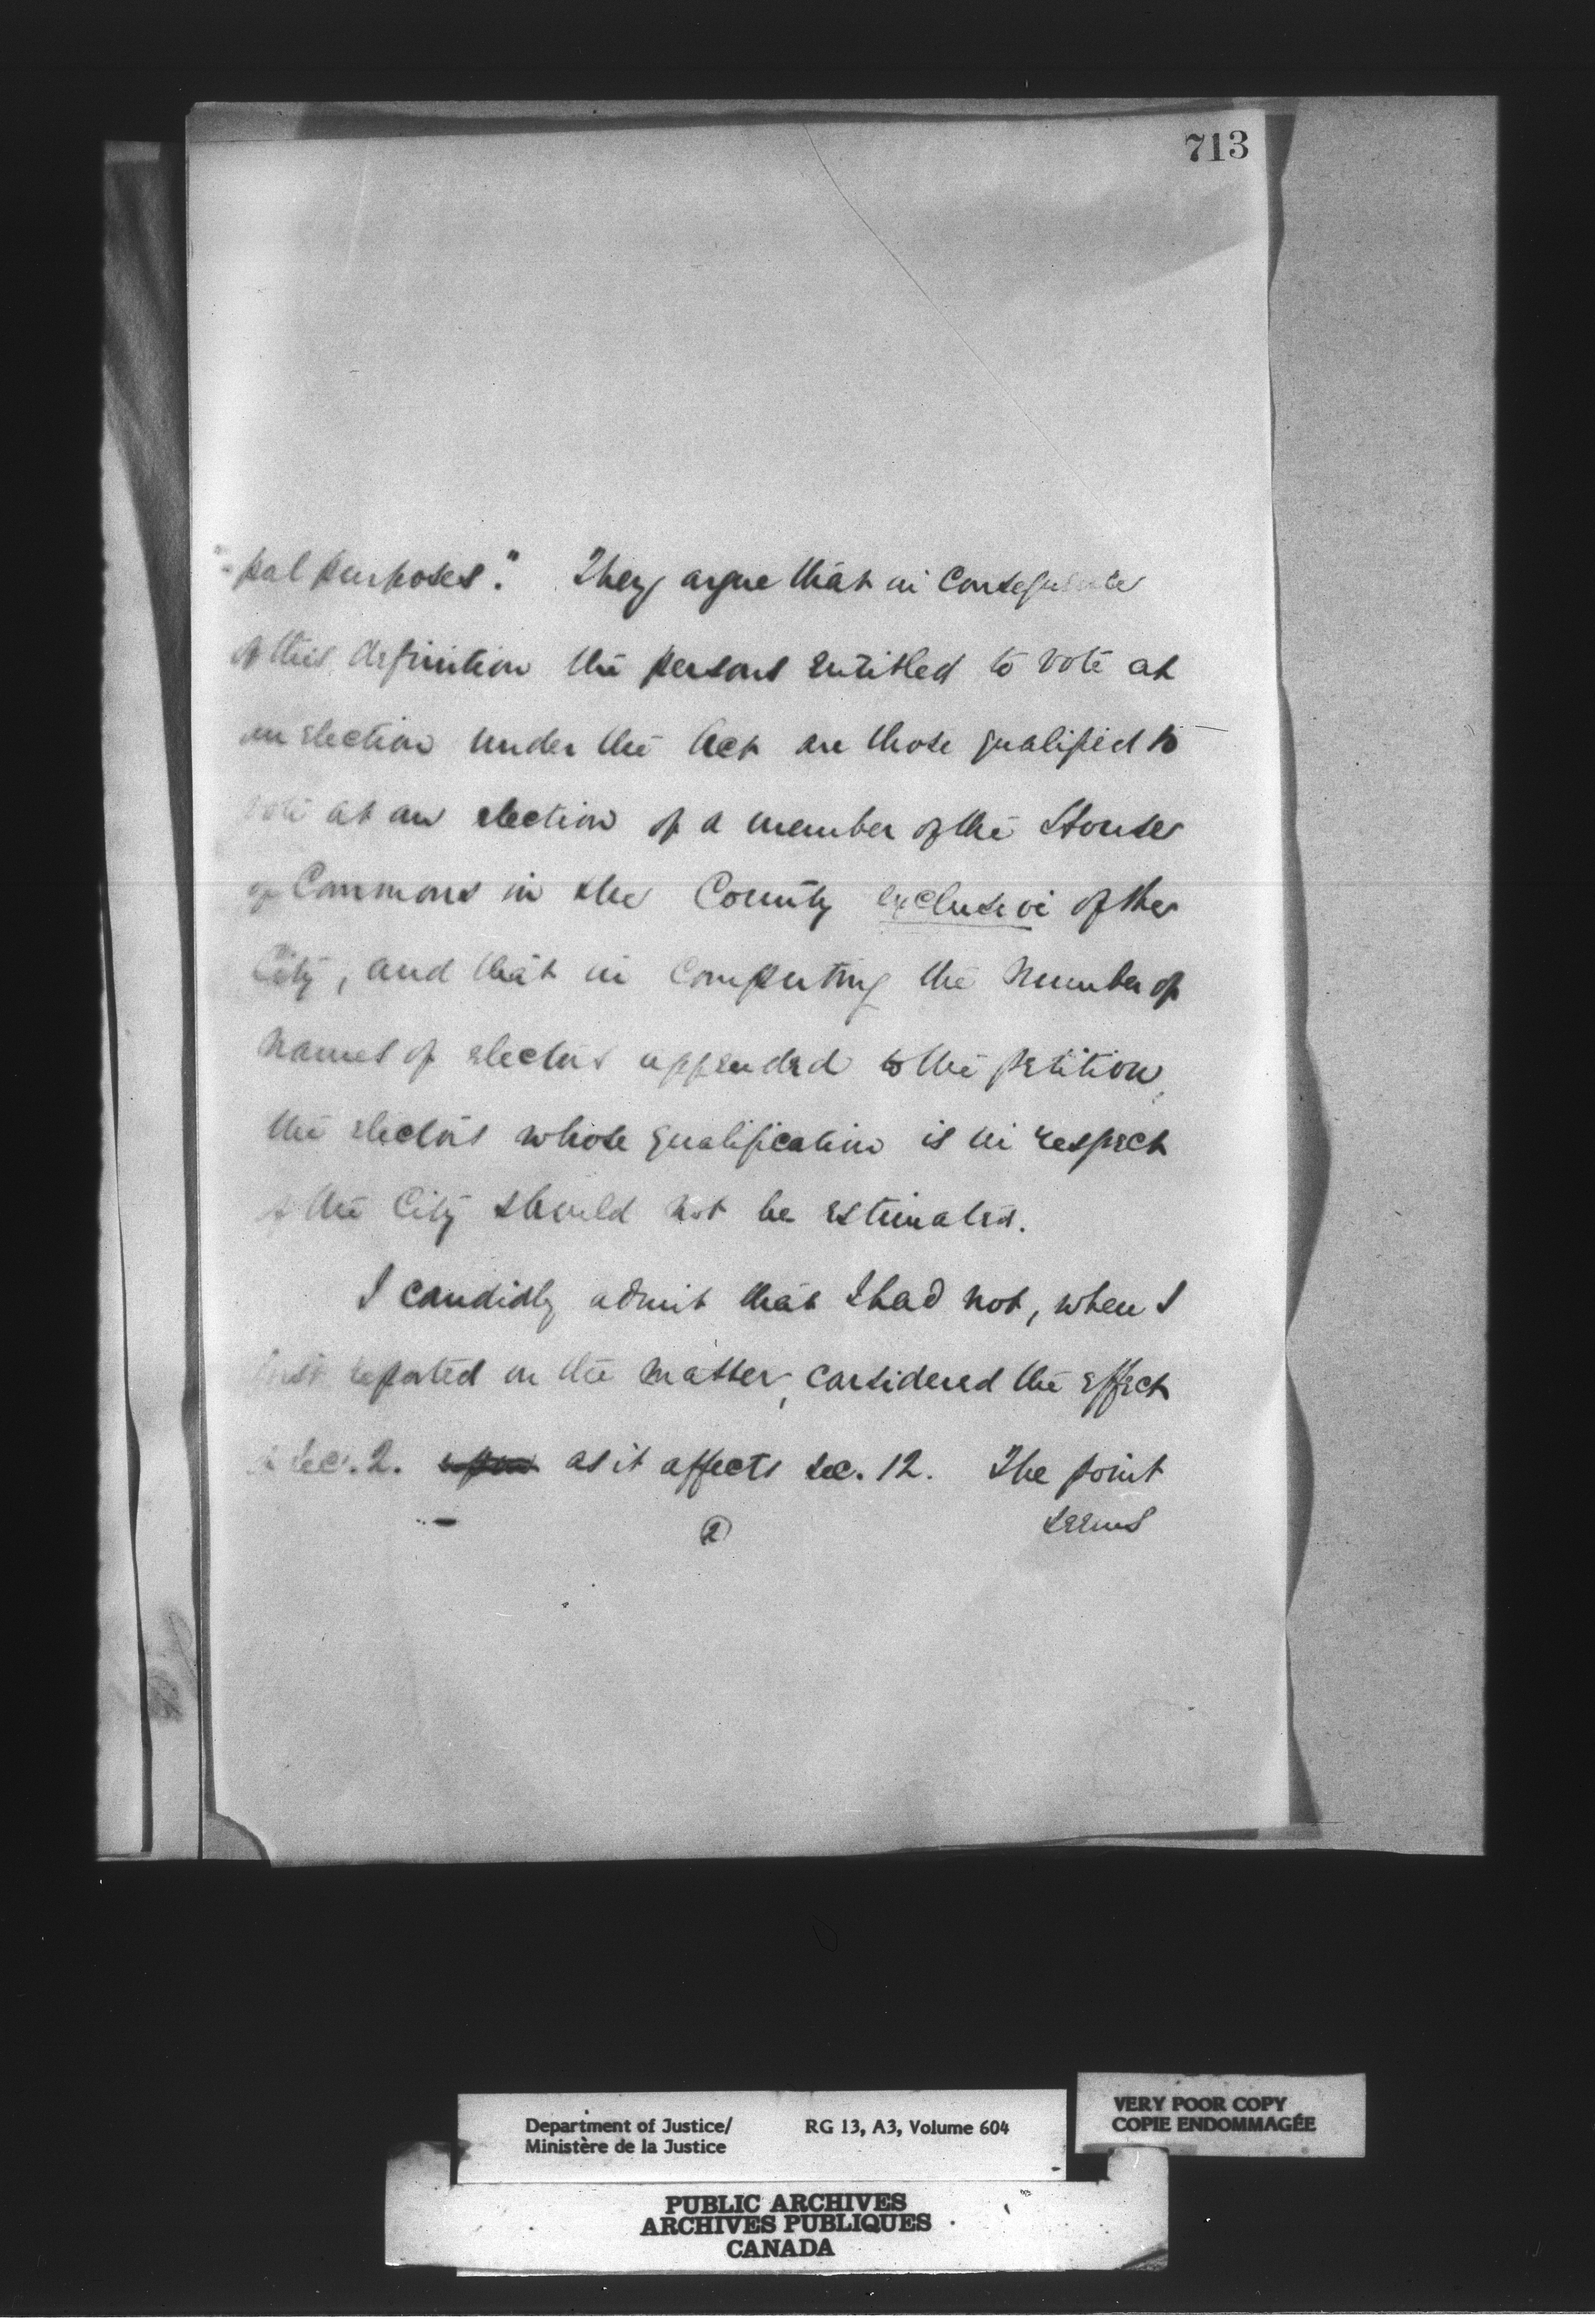 713
"-pal purposes." They argue that in consequence
of this definition the persons entitled to vote at
an election under the Act are those qualified to
vote at an election of a member of the House
of Commons in the County exclusive of the
City, and that in computing the number of
names of electors appended to the petition,
the electors whose qualification is in respect
of the City should not be estimated.
I candidly admit that I had not, when I
first reported on the matter, considered the effect
of sec. 2. upon as it affects sec. 12. The point
seems
2
Department of Justice/ RG 13, A3, Volume 604
Ministère de la Justice
VERY POOR COPY
COPIE ENDOMMAGÉE
PUBLIC ARCHIVES
ARCHIVES PUBLIQUES
CANADA